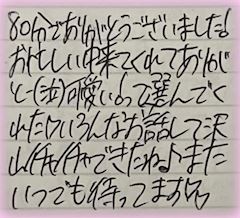 80分でありがとうございました！
お忙しい中来てくれてありが
と〜(泣)可愛い。って選んでく
れたけいろんなお話して沢
山イチャイチャできたね♪また
いつでも待ってます